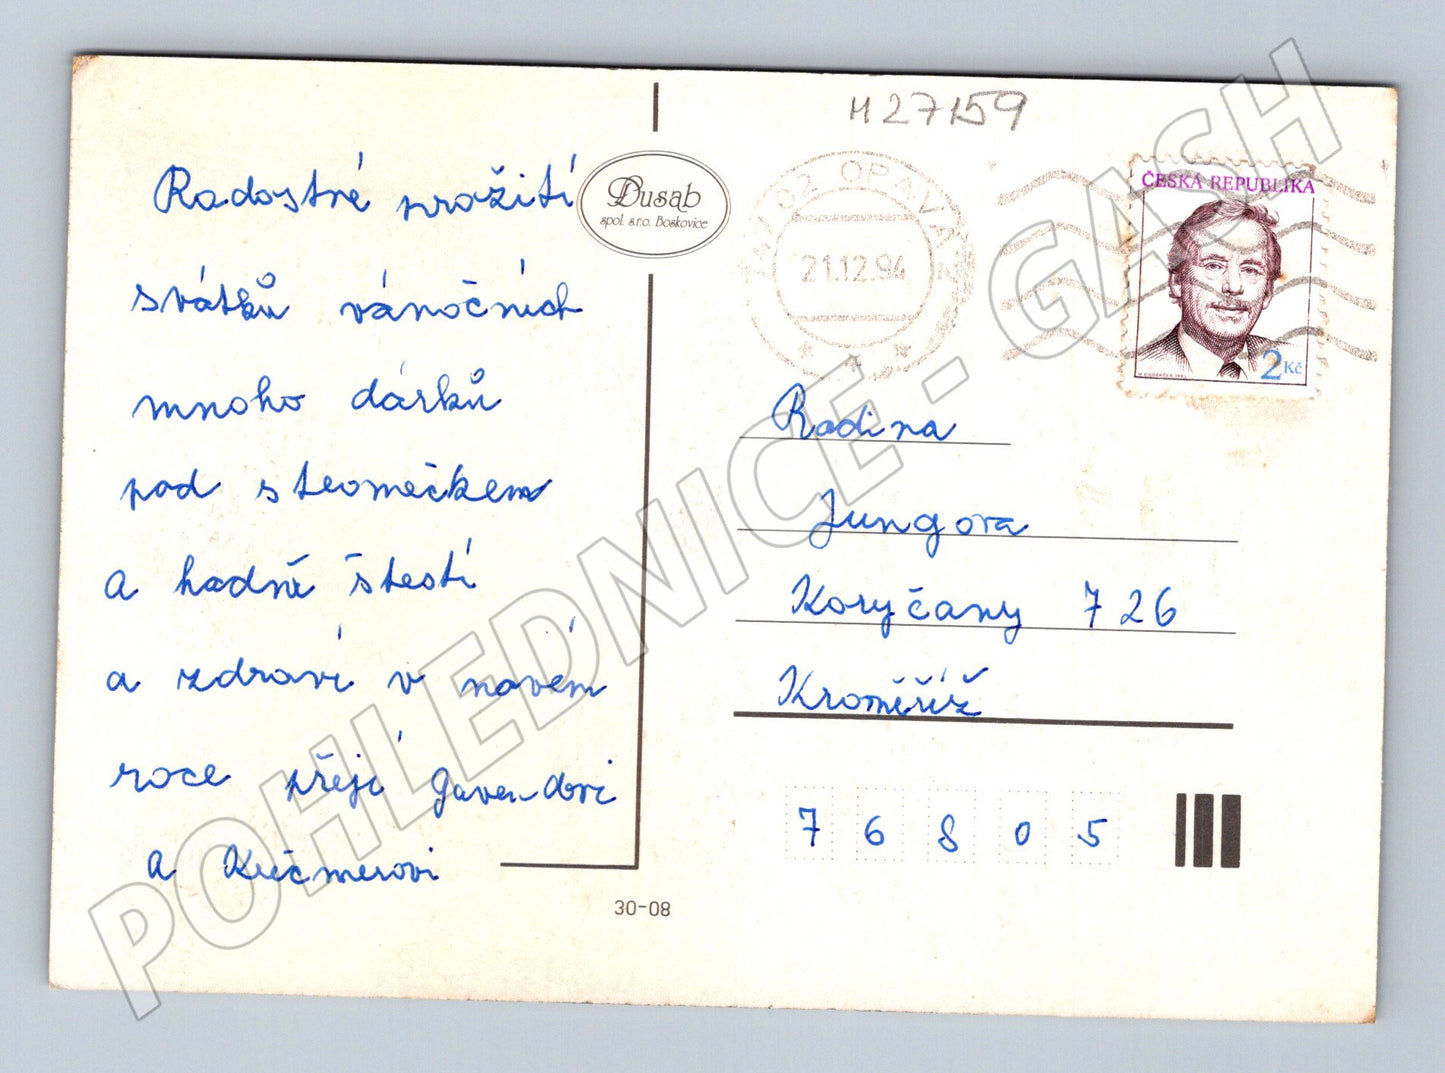 M 27159
Radostné prožití
svátků vánočních
mnoho dárků
pod stromečkem
a hodně štestí
a zdraví v novém
roce přejí Gavendovi
a Krečmerovi
Dusab
spol. s.r.o. Boskovice
02 OPAVA 2
21.12.94
ČESKÁ REPUBLIKA
2 Kč
Rodina
Jungova
Koryčany 726
Kroměříž
76805
30-08
POHLEDNICE - GASH